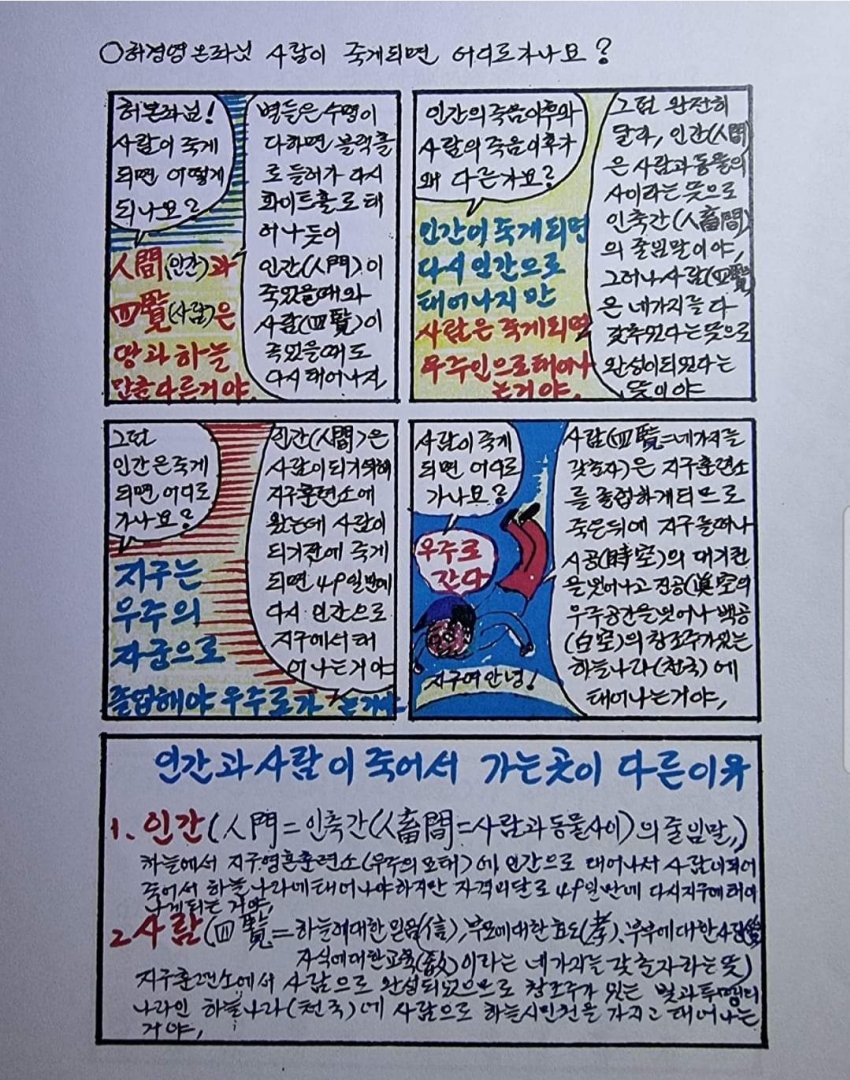 ○허경영 본좌님 사람이 죽게되면 어디로가나요?
허본좌님!
사람이 죽게
되면 어떻게
되나요?
人間(인간)과
四覽(사람)은
땅과 하늘
만큼다른거야.
별들은 수명이
다하면 블랙홀
로 들러가 다시
화이트홀로 태
어나듯이
인간(人門)이
죽었을때와
사람(四覽)이
죽었을때도
다시태어나지,
인간의죽음이후와
사람의 죽음이후가
왜 다른가요?
인간이 죽게되면
다시 인간으로
태어나지만
사람은 죽게되면
우주인으로태어나
는거야.
그럼 완전히
달라, 인간(人間)
은 사람과동물의
사이라는 뜻으로
인축간(人畜間)
의 줄임말이야,
그러나 사람(四覽)
은 네가지를 다
갖추었다는뜻으로
완성이되었다는
뜻이야
그럼
인간은죽게
되면 어디로
가나요?
지구는
우주의
자궁으로
졸업해야 우주로가는거야
인간(人間)은
사람이되기위해
지구훈련소에
왔는데 사람이
되기전에 죽게
되면 49일만에
다시 인간으로
지구에서 태
어나는거야
사람이 죽게
되면 어디로
가나요?
우주로
간다
지구여안녕!
사람(四覽=네가지를
갖춘자)은 지구훈련소
를 졸업하게되므로
죽은뒤에 지구를떠나
시공(時空)의 대기권
을벗어나고 진공(眞空)의
우주공간을벗어나 백공
(白空)의 창조주가있는
하늘나라(천국)에
태어나는거야,
인간과사람이 죽어서 가는곳이 다른이유
1. 인간(人門=인축간(人畜間=사람과동물사이)의 줄임말,)
하늘에서 지구영혼훈련소(우주의모태)에 인간으로 태어나서 사람이되어
죽어서 하늘나라에태어나야하지만 자격미달로 49일만에 다시지구에태어
나게되는거야,
2. 사람(四覽=하늘에대한믿음(信), 부모에대한효도(孝), 부부에대한사랑(愛)
자식에대한교육(敎)이라는 네가지를갖춘자라는뜻)
지구훈련소에서 사람으로 완성되었으므로 창조주가 있는 빛과투명의
나라인 하늘나라(천국)에 사람으로 하늘시민권을 가지고 태어나는
거야,